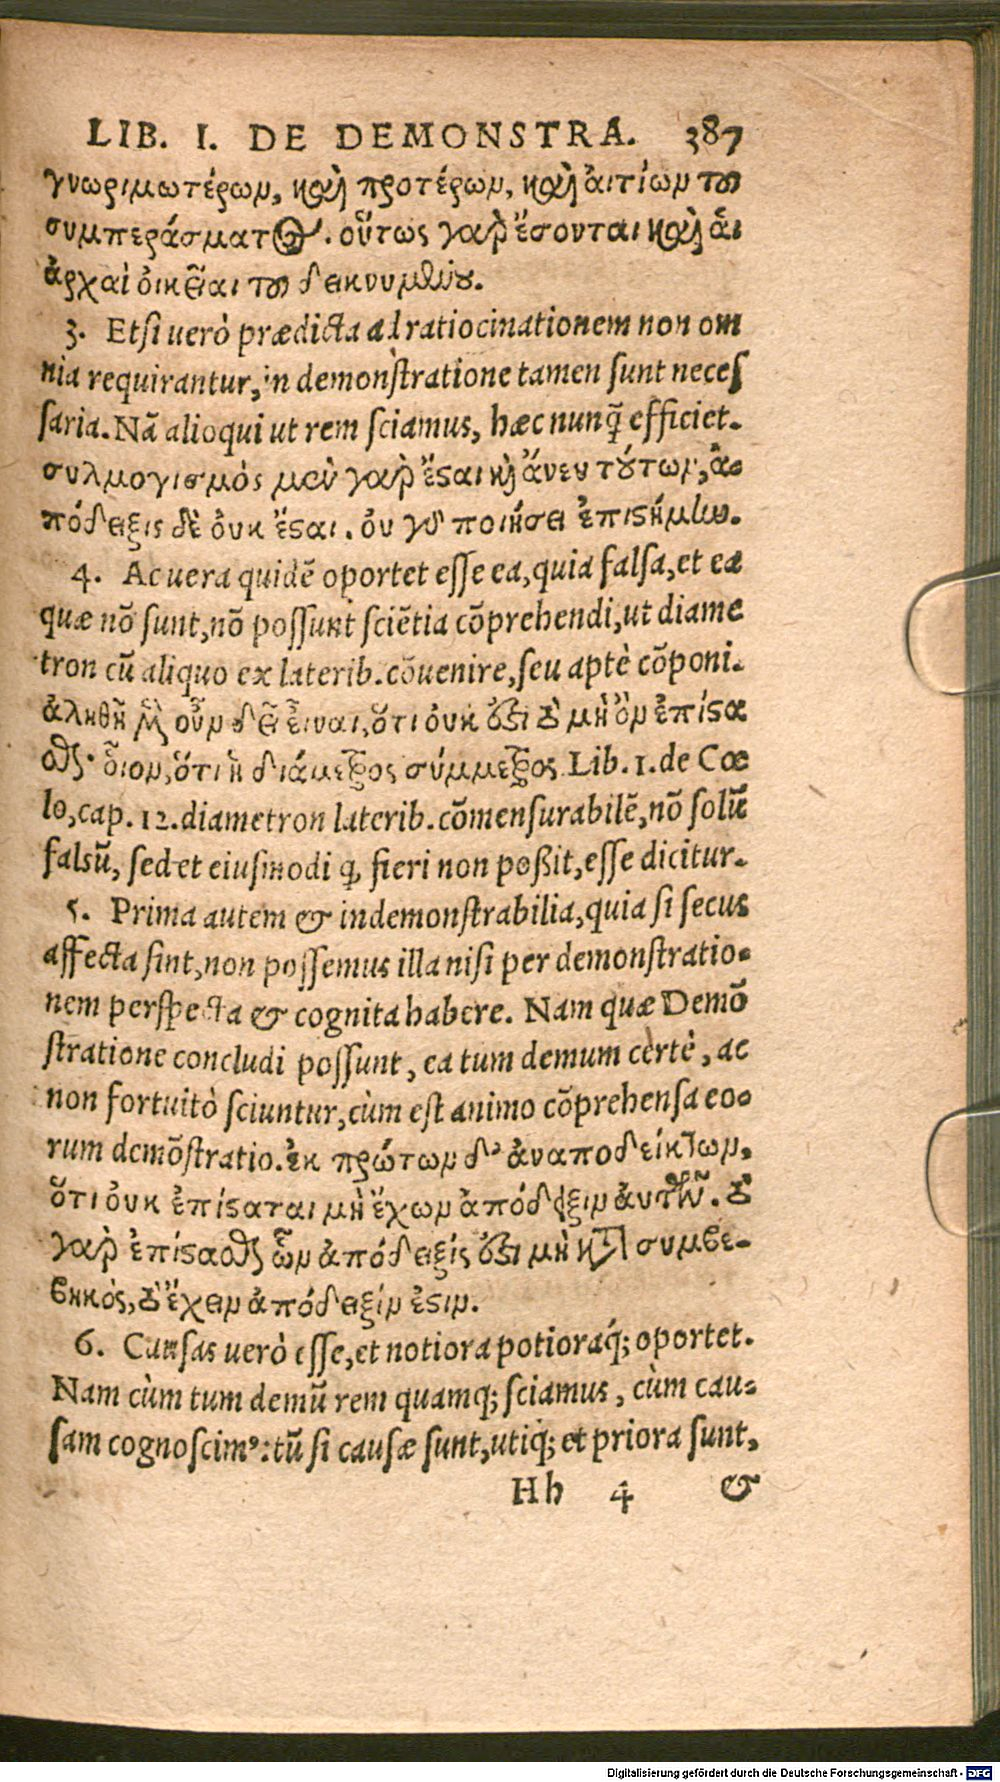 LIB. I. DE DEMONSTRA. 387
γνωριμωτέρων, καὶ προτέρων, καὶ ἀιτίων τοῦ
συμπεράσματος. οὕτως γὰρ ἔσονται καὶ ἁι
ἀρχαὶ ὀικεῖαι τοῦ δεικνυμένου.
3. Etsi uerò prædicta ad ratiocinationem non om
nia requirantur, in demonſtratione tamen ſunt neceſ
ſaria. Nã alioqui ut rem ſciamus, hæc nunq̃ efficiet.
συλλογισμὸς μὲν γὰρ ἔσαι καὶ ἄνευ τούτων, ἀ-
πόδειξις δὲ ὀυκ ἔσαι. ὀυ γὰρ ποιήσει ἐπιστήμην.
4. Ac uera quidẽ oportet eſſe ea, quia falſa, et ea
quæ nõ ſunt, nõ poſſunt ſciẽtia cõprehendi, ut diame
tron cũ aliquo ex laterib. cõuenire, ſeu aptè cõponi.
ἀληθῆ μὲν οὖν δεῖ εἶναι, ὅτι ὀυκ ἔστι τὸ μὴ ὂν ἐπίστα
σθαι· οἷον, ὅτι ἡ διάμετρος σύμμετρος. Lib. 1. de Cœ
lo, cap. 12. diametron laterib. cõmenſurabilẽ, nõ ſolũ
falsũ, ſed et eiuſmodi q̃ fieri non poßit, eſſe dicitur.
5. Prima autem & indemonſtrabilia, quia ſi ſecus
affecta ſint, non poſſemus illa niſi per demonſtratio-
nem perſpecta & cognita habere. Nam quæ Demõ
ſtratione concludi poſſunt, ea tum demum certè, ac
non fortuitò ſciuntur, cùm eſt animo cõprehenſa eo-
rum demõſtratio. ἐκ πρώτων δ' ἀναποδείκτων,
ὅτι ὀυκ ἐπίσταται μὴ ἔχων ἀπόδειξιν ἀυτῶν. τὸ
γὰρ ἐπίστασθαι ὧν ἀπόδειξίς ἐστι μὴ κατὰ συμβε-
βηκὸς, τὸ ἔχειν ἀπόδειξίν ἐστιν.
6. Cauſas uerò eſſe, et notiora potioraq́; oportet.
Nam cùm tum demũ rem quamq; ſciamus, cùm cau-
ſam cognoſcimꝰ: tũ ſi cauſæ ſunt, utiq; et priora ſunt,
Hh 4 &
Digitalisierung gefördert durch die Deutsche Forschungsgemeinschaft - DFG